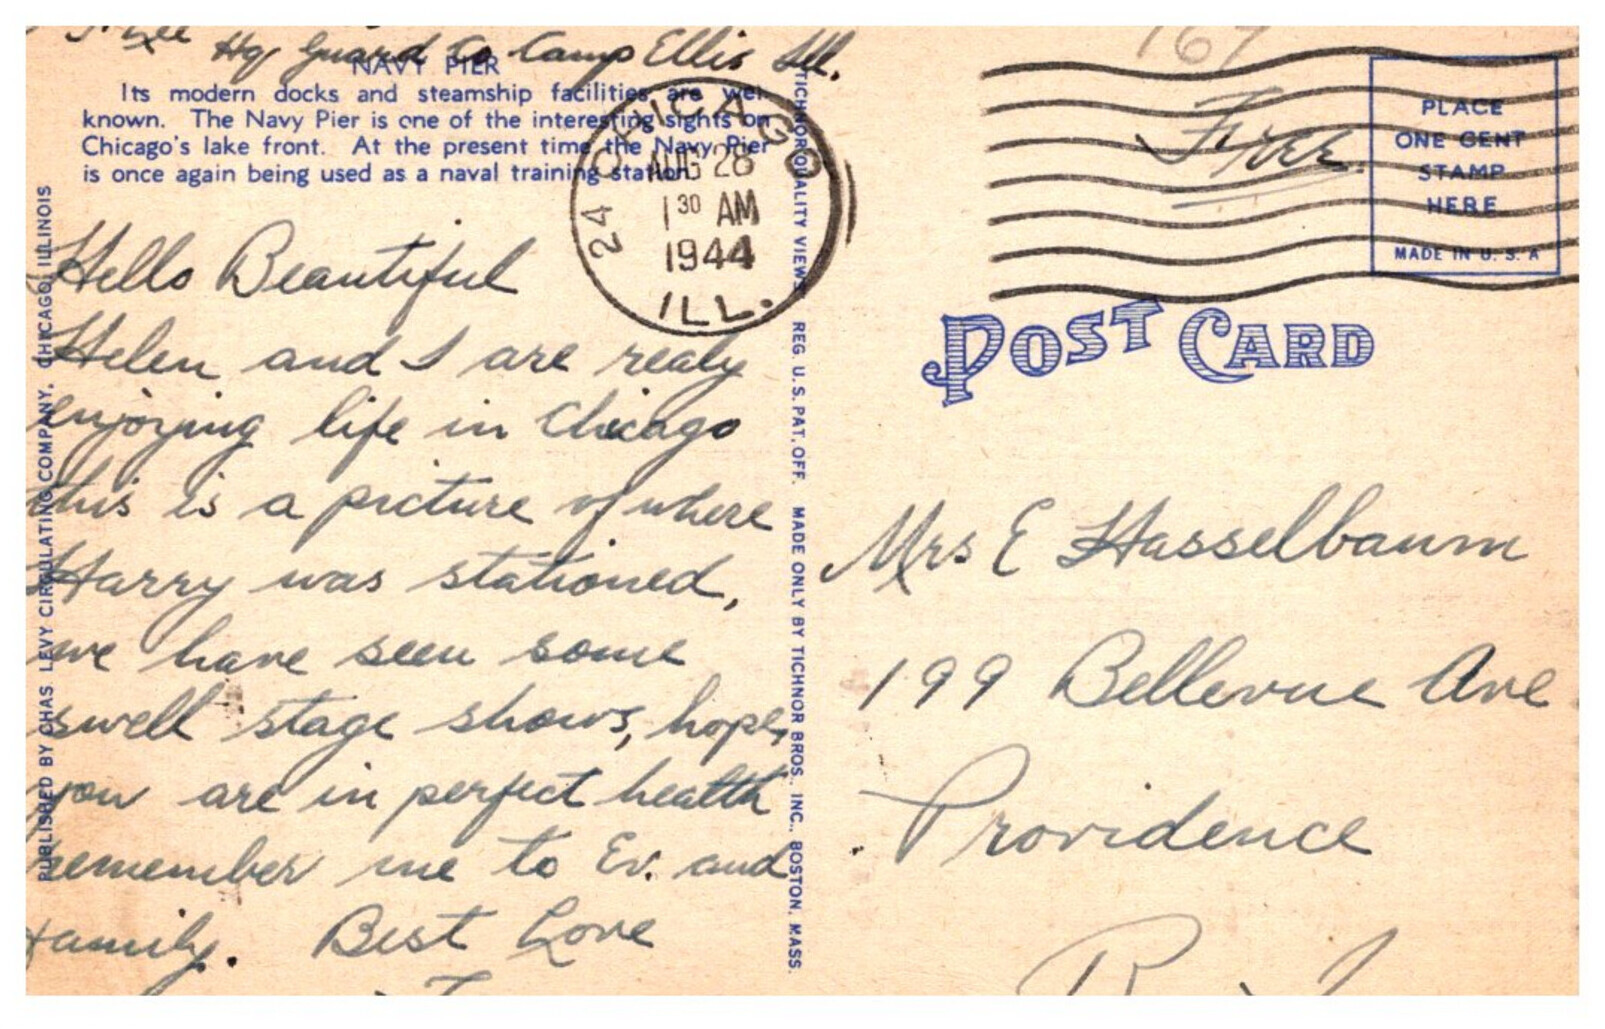 Hq Guard Co Camp Ellis Ill.
NAVY PIER
Its modern docks and steamship facilities are well
known. The Navy Pier is one of the interesting sights on
Chicago's lake front. At the present time the Navy Pier
is once again being used as a naval training station.
CHICAGO 24
AUG 28
1 30 AM
1944
ILL.
Hello Beautiful
Helen and I are realy
enjoying life in Chicago
this is a picture of where
Harry was stationed,
we have seen some
swell stage shows, hope,
you are in perfect health
remember me to Ev. and
family. Best Love
PUBLISHED BY CHAS LEVY CIRCULATING COMPANY, CHICAGO, ILLINOIS
TICHNOR QUALITY VIEWS, REG. U. S. PAT. OFF. MADE ONLY BY TICHNOR BROS., INC., BOSTON, MASS.
167
Free
PLACE
ONE CENT
STAMP
HERE
MADE IN U. S. A
POST CARD
Mrs E Hasselbaum
199 Bellevue Ave
Providence